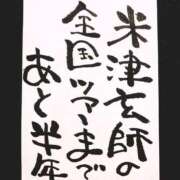 米津玄師の
全国ツアーまで
あと半年